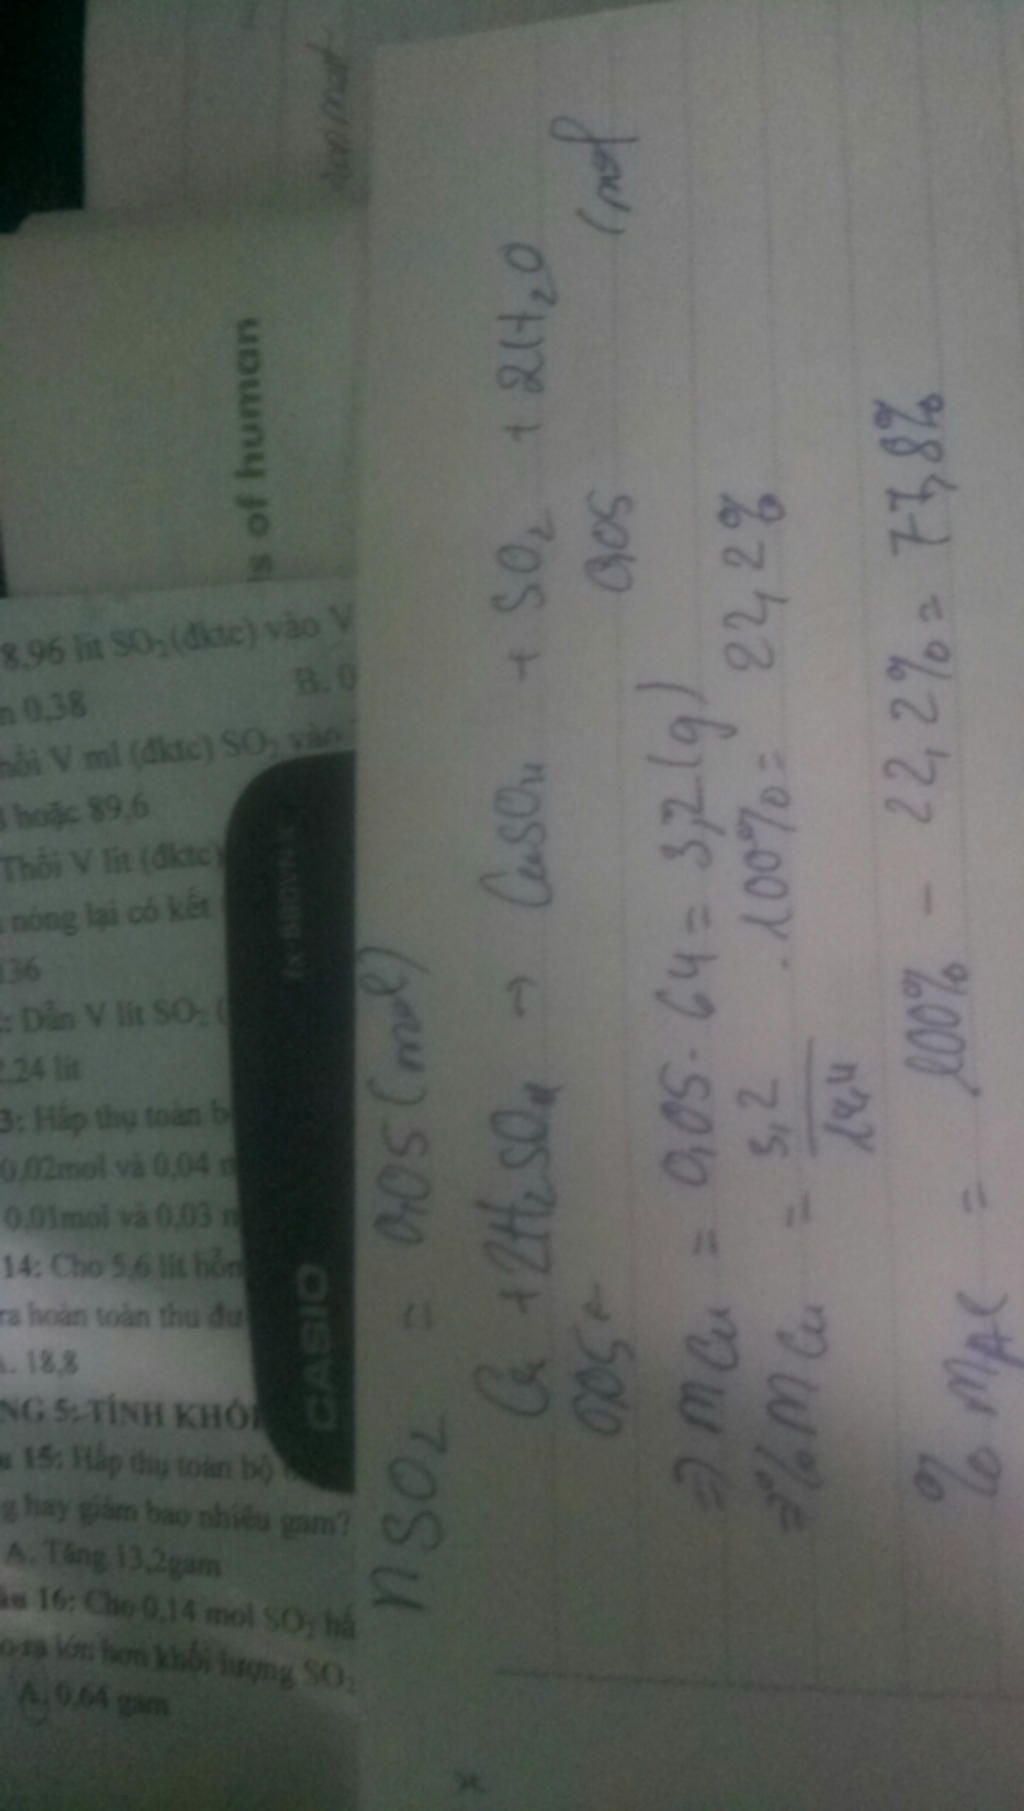 nSO2 = 0,05 (mol)
Cu + 2H2SO4 → CuSO4 + SO2 + 2H2O
0,05 ← 0,05 (mol
⇒ mCu = 0,05 . 64 = 3,2 (g)
⇒ %mCu = 3,2 / 14,4 . 100% = 22,2%
%mAl = 100% - 22,2% = 77,8%
s of human
8,96 lít SO2 (đktc) vào V
0,38 B. 0
V ml (đktc) SO2 vào
hoặc 89,6
Thổi V lít (đktc)
nóng lại có kết
136
: Dẫn V lít SO2 (
2,24 lít
3: Hấp thụ toàn b
0,02mol và 0,04
0,01mol và 0,03
14: Cho 5,6 lít hỗn
ra hoàn toàn thu đư
A. 18,8
NG 5: TÍNH KHỐI
15: Hấp thụ toàn bộ
g hay giảm bao nhiêu gam?
A. Tăng 13,2gam
16: Cho 0,14 mol SO2 hấ
lớn hơn khối lượng SO2
A. 0,64 gam
CASIO